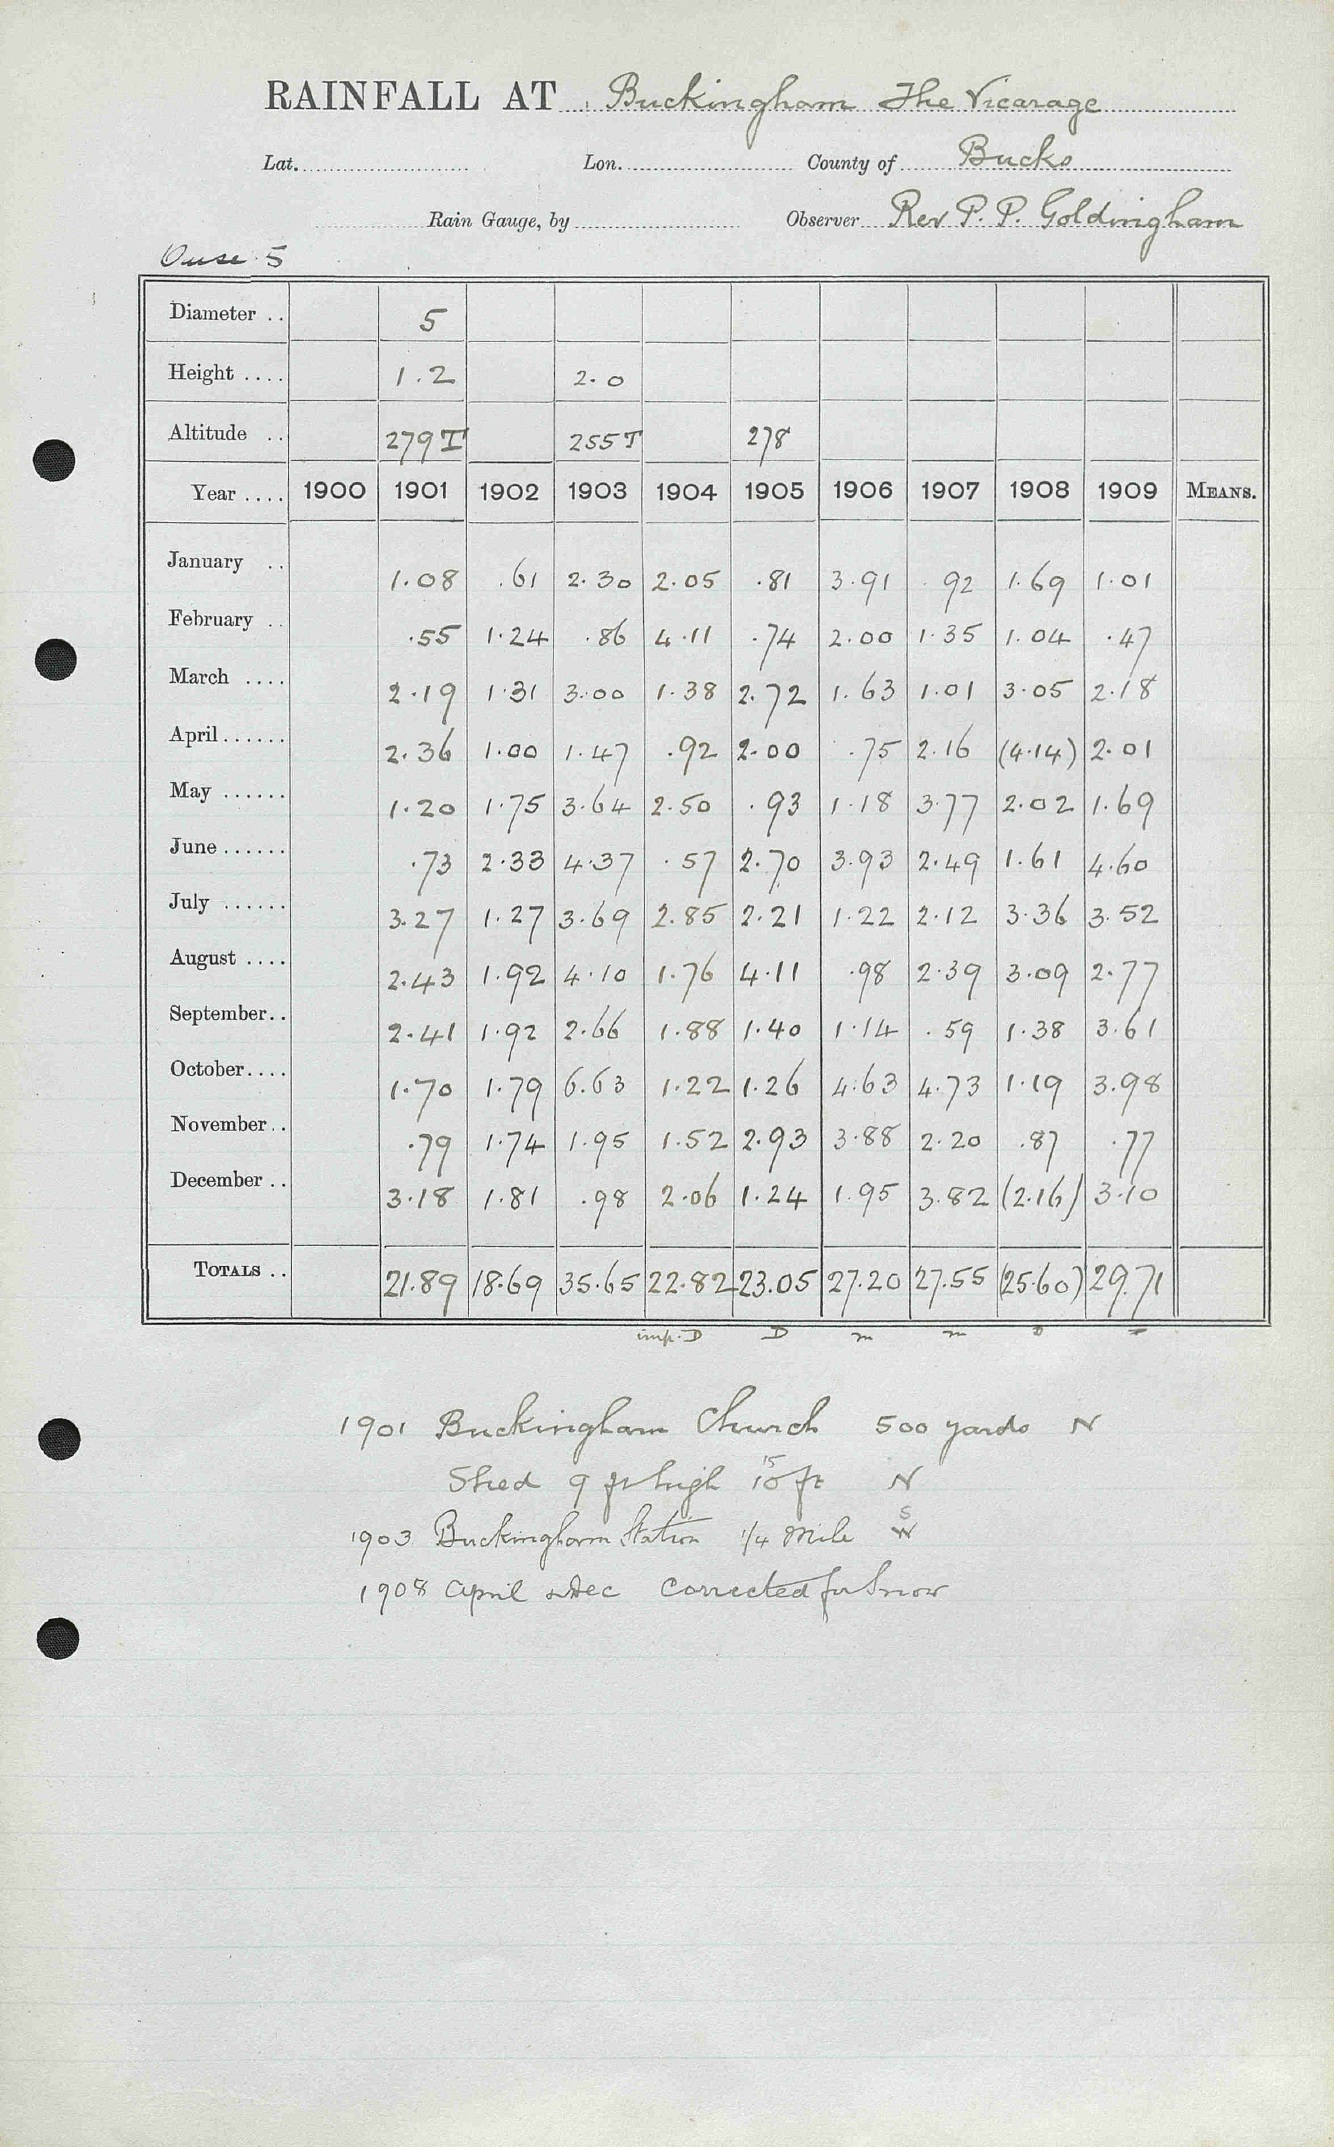 RAINFALL AT Buckingham The Vicarage
Lat. Lon. County of Bucks
Rain Gauge, by Observer Rev P. P. Goldingham
Ouse 5
Diameter .. 5
Height .... 1.2 2.0
Altitude .. 279 T 255 T 278
Year .... 1900 1901 1902 1903 1904 1905 1906 1907 1908 1909 MEANS.
January .. 1.08 .61 2.30 2.05 .81 3.91 .92 1.69 1.01
February .. .55 1.24 .86 4.11 .74 2.00 1.35 1.04 .47
March .... 2.19 1.31 3.00 1.38 2.72 1.63 1.01 3.05 2.18
April...... 2.36 1.00 1.47 .92 2.00 .75 2.16 (4.14) 2.01
May ...... 1.20 1.75 3.64 2.50 .93 1.18 3.77 2.02 1.69
June...... .73 2.33 4.37 .57 2.70 3.93 2.49 1.61 4.60
July ...... 3.27 1.27 3.69 2.85 2.21 1.22 2.12 3.36 3.52
August .... 2.43 1.92 4.10 1.76 4.11 .98 2.39 3.09 2.77
September.. 2.41 1.92 2.66 1.88 1.40 1.14 .59 1.38 3.61
October.... 1.70 1.79 6.63 1.22 1.26 4.63 4.73 1.19 3.98
November.. .79 1.74 1.95 1.52 2.93 3.88 2.20 .87 .77
December .. 3.18 1.81 .98 2.06 1.24 1.95 3.82 (2.16) 3.10
TOTALS .. 21.89 18.69 35.65 22.82 23.05 27.20 27.55 (25.60) 29.71
imp. D D m m
1901 Buckingham Church 500 yards N
Shed 9 ft high 15 ft N
1903 Buckingham Station 1/4 Mile S
1908 April & Dec Corrected for Snow